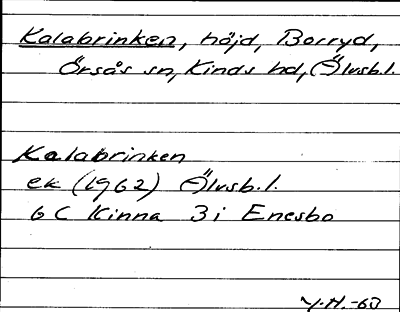 Kalabrinken, höjd, Borryd,
Örsås sn, Kinds hd, Älvsb.l.
Kalabrinken
ek (1962) Älvsb.l.
6 C Kinna 3 i Enesbo
Y.H.-63